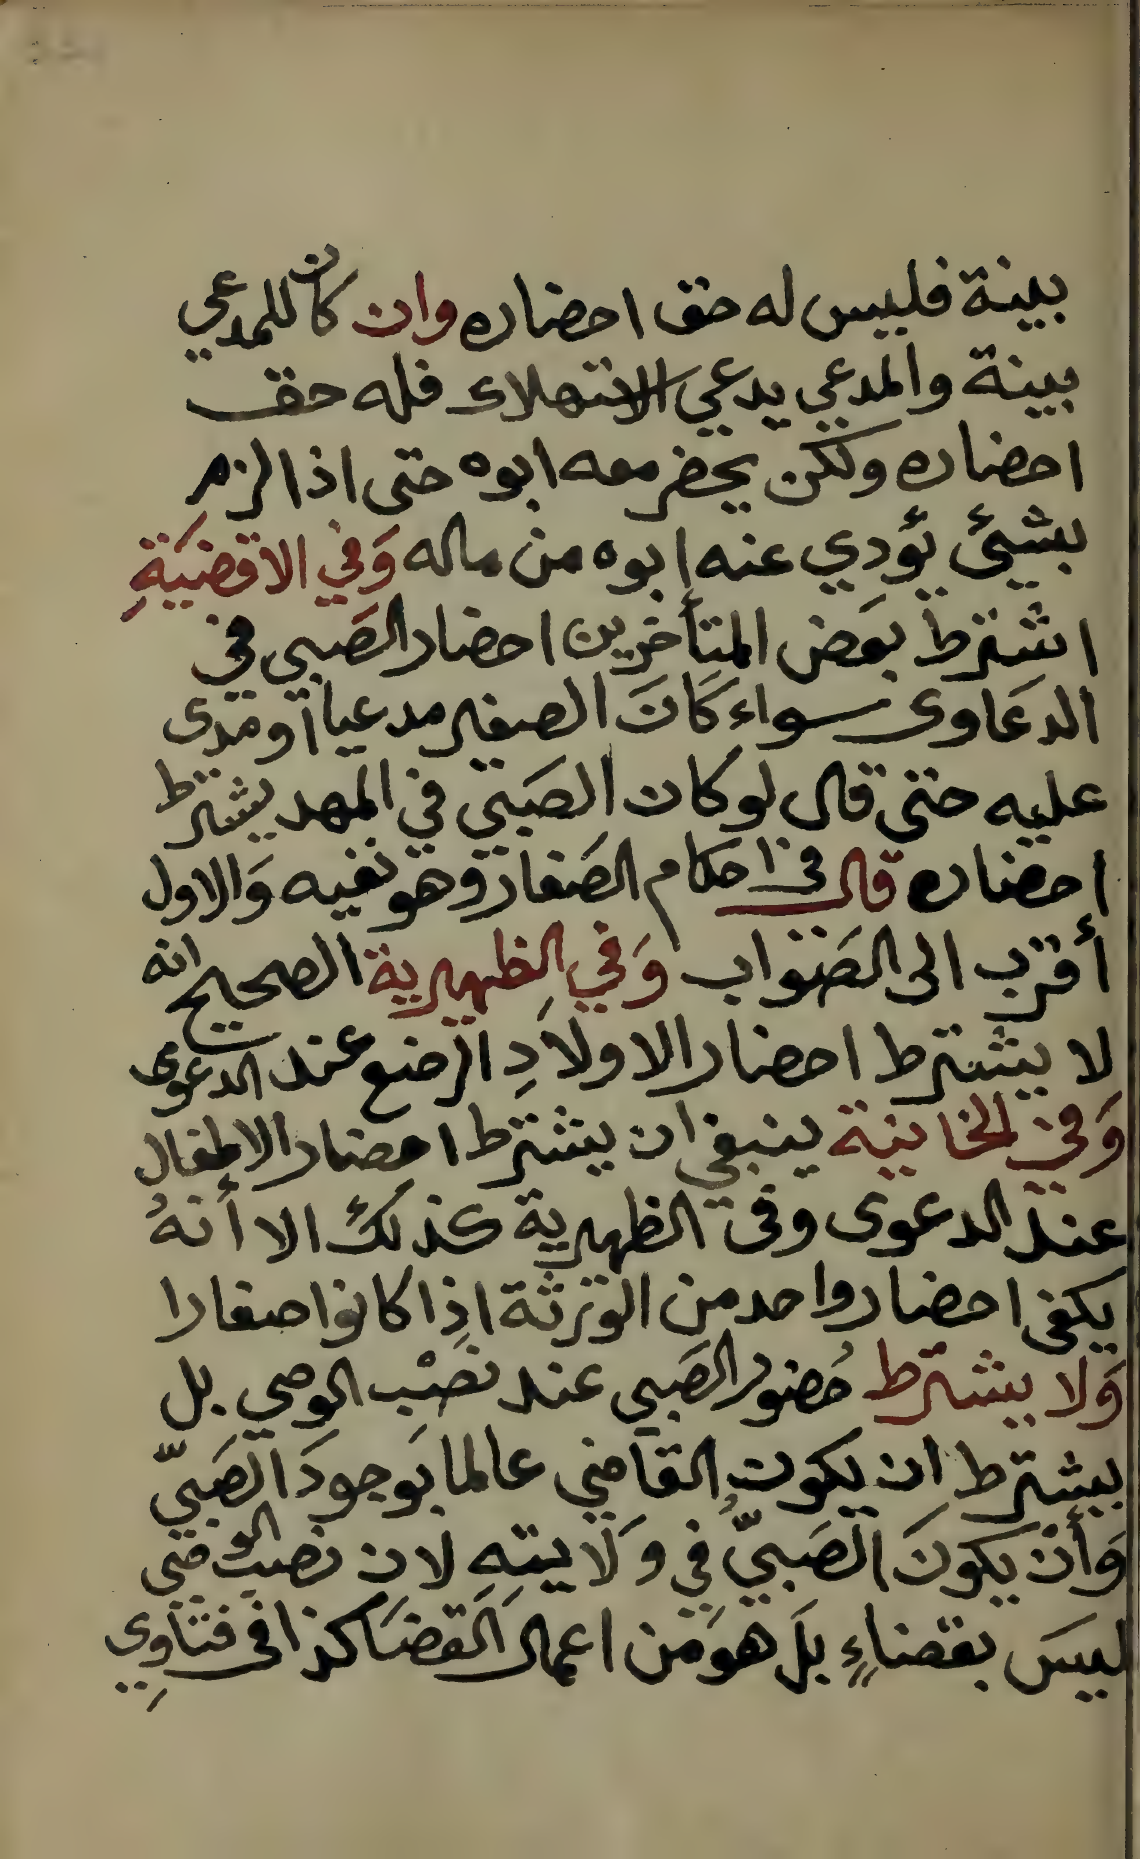 بينة فليس له حق احضاره وان كان للمدعي
بينة والمدعي يدعي الاستهلاك فله حق
احضاره ولكن يحضر معه ابوه حتى اذا الزم
بشيئ يؤدي عنه ابوه من ماله وَفي الاقضيَةِ
اشترط بعَض المتأخرين احضار الصَبي في
الدعَاوى سواء كَانَ الصغير مدعيا او مدى
عليه حتى قال لو كان الصَبي في المهد يشترط
احضاره قال في احكام الصَغار وهو نفيه وَالاول
أقرب الى الصَواب وَفي الظهيرية الصحيح انه
لا يشترط احضار الاولادِ الرضع عند الدعوى
وَفي الخانية ينبغي ان يشترط احضار الاطفال
عند الدعوى وفي الظهيرية كذلك الا أنهُ
يكفى احضار واحد من الورثة اذِا كانوا صغارا
وَلا يشترط حُضور الصَبي عند نصْب الوصي بل
يشترط ان يكون القاضي عالما بوَجودَ الصَبيّ
وَأن يكونَ الصَبيّ في وَلايتهِ لان نصب الوصي
ليسَ بقضاءٍ بلَ هوَ من اعمال القضَا كذا في فتاوِي